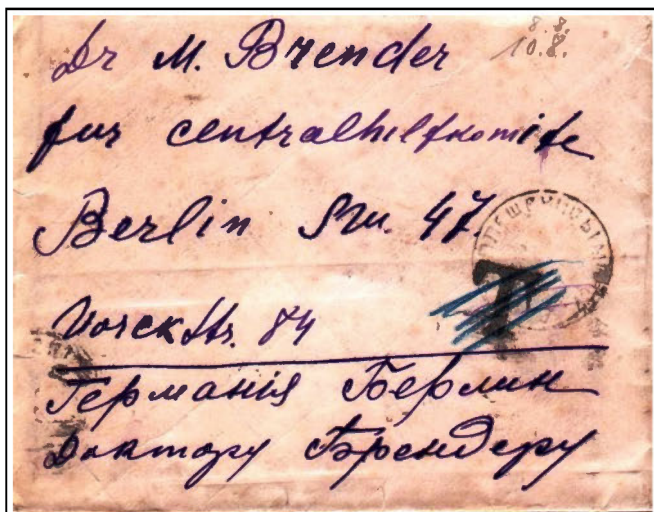 8.8.
10.8.
Dr M. Brender
fur centralhilfkomite
Berlin SW. 47.
Yorckstr. 84
T
Германія Берлин
Доктору Брендеру